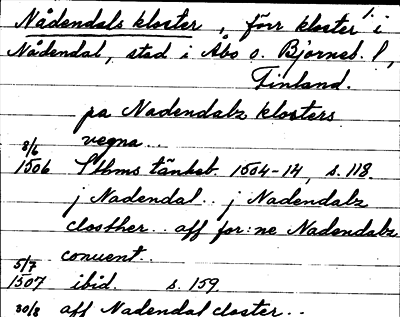 1.
Nådendals kloster, förr kloster i
Nådendal, stad i Åbo o. Björneb. l,
Finland.
pa Nadendalz klosters
vegna..
8/6
1506 Sthms tänkeb. 1504-14, s. 118.
j Nadendal.. j Nadendalz
closther.. aff for:ne Nadendalz
conuent..
5/7
1507 ibid. s. 159
30/8 aff Nadendal closter..